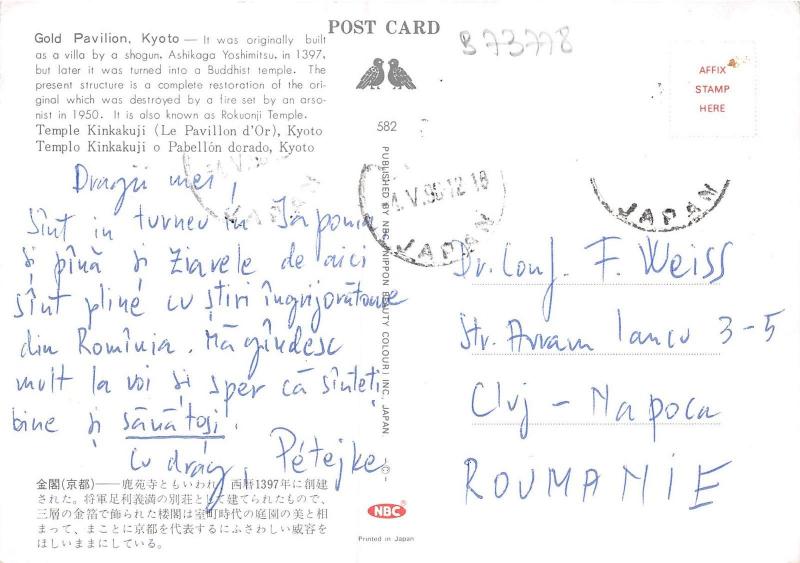 POST CARD
B73778
Gold Pavilion, Kyoto — It was originally built
as a villa by a shogun, Ashikaga Yoshimitsu, in 1397,
but later it was turned into a Buddhist temple. The
present structure is a complete restoration of the ori-
ginal which was destroyed by a fire set by an arso-
nist in 1950. It is also known as Rokuonji Temple.
Temple Kinkakuji (Le Pavillon d'Or), Kyoto
Templo Kinkakuji o Pabellón dorado, Kyoto
AFFIX
STAMP
HERE
582
JAPAN
JAPAN
JAPAN
Dragii mei,
Sînt in turneu in Japonia
și pînă și ziarele de aici
sînt pline cu știri îngrijorătoare
din România. Mă gîndesc
mult la voi și sper că sînteți
bine și sănătoși.
Cu drag, Pétejke
PUBLISHED BY NBC, NIPPON BEAUTY COLOUR INC. JAPAN
-©-
Dr. Conf. F. Weiss
Str. Avram Iancu 3-5
Cluj - Napoca
ROUMANIE
金閣(京都)——鹿苑寺ともいわれ、西暦1397年に創建
された。将軍足利義満の別荘として建てられたもので、
三層の金箔で飾られた楼閣は室町時代の庭園の美と相
まって、まことに京都を代表するにふさわしい威容を
ほしいままにしている。
NBC
Printed in Japan